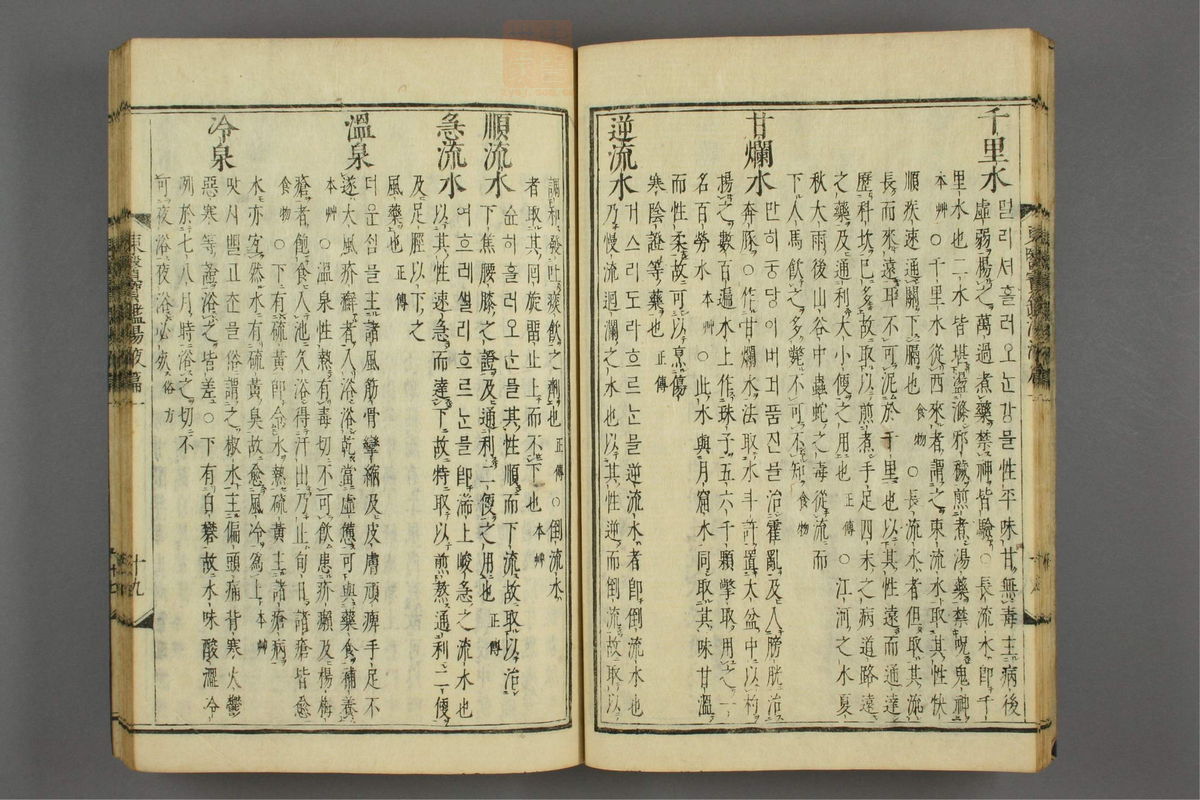 千里水 멀리셔흘러오ᄂᆞᆫ강믈性平味甘無毒主病後
虛弱揚之萬過煮藥禁神皆驗○長流水卽千
里水也二水皆堪盪滌邪穢煎煮湯藥禁呪鬼神
本草 ○千里水從西來者謂之東流水取其性快
順疾速通關下膈也 食物 ○長流水者但取其流
長而來遠耳不可泥於千里也以其性遠而通達
歷科坎已多故取以煎煮手足四末之病道路遠
之藥及通利大小便之用也 正傳 ○江河之水夏
秋大雨後山谷中蟲蛇之毒從流而
下人馬飮之多斃不可不知 食物
甘爛水 만히동당이텨거품진믈治霍亂及入膀胱治
奔豚○作甘爛水法取水斗許置大盆中以杓
揚之數百遍水上作珠子五六千顆擎取用之一
名百勞水 本草 ○此水與月窟水同取其味甘溫
而性柔故可以烹傷
寒陰證等藥也 正傳
逆流水 거스리도라흐르ᄂᆞᆫ믈逆流水者卽倒流水也
乃慢流迴瀾之水也以其性逆而倒流故取以
調和發吐痰飮之劑也 正傳 ○倒流水
者取其回旋留止上而不下也 本草
順流水 슌히흘러오ᄂᆞᆫ믈其性順而下流故取以治
下焦腰膝之證及通利二便之用也 正傳
急流水 여흐레ᄲᆞᆯ리흐르ᄂᆞᆫ믈卽湍上峻急之流水也
以其性速急而達下故特取以煎熬通利二便
及足脛以下之
風藥也 正傳
溫泉 더운ᄉᆡᆷ믈主諸風筋骨攣縮及皮膚頑痺手足不
遂大風疥癬者入浴浴乾當虛憊可與藥食補養
本草 ○溫泉性熱有毒切不可飮患疥癩及楊梅
瘡者飽食入池久浴得汗出乃止旬日諸瘡皆愈
食物 ○下有硫黃卽令水熱硫黃主諸瘡病
水亦宜然水有硫黃臭故愈風冷爲上 本草
冷泉 맛시ᄠᅥᆯ고ᄎᆞᆫ믈俗謂之椒水主偏頭痛背寒火鬱
惡寒等證浴之皆差○下有白礬故水味酸澁冷
冽於七八月時浴之切不
可夜浴夜浴必死 俗方
東醫寶鑑湯液篇一 十九